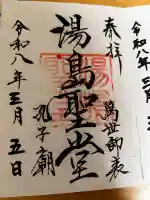 奉拝
萬世師表
湯島聖堂
孔子廟
令和八年三月五日
令和八年三